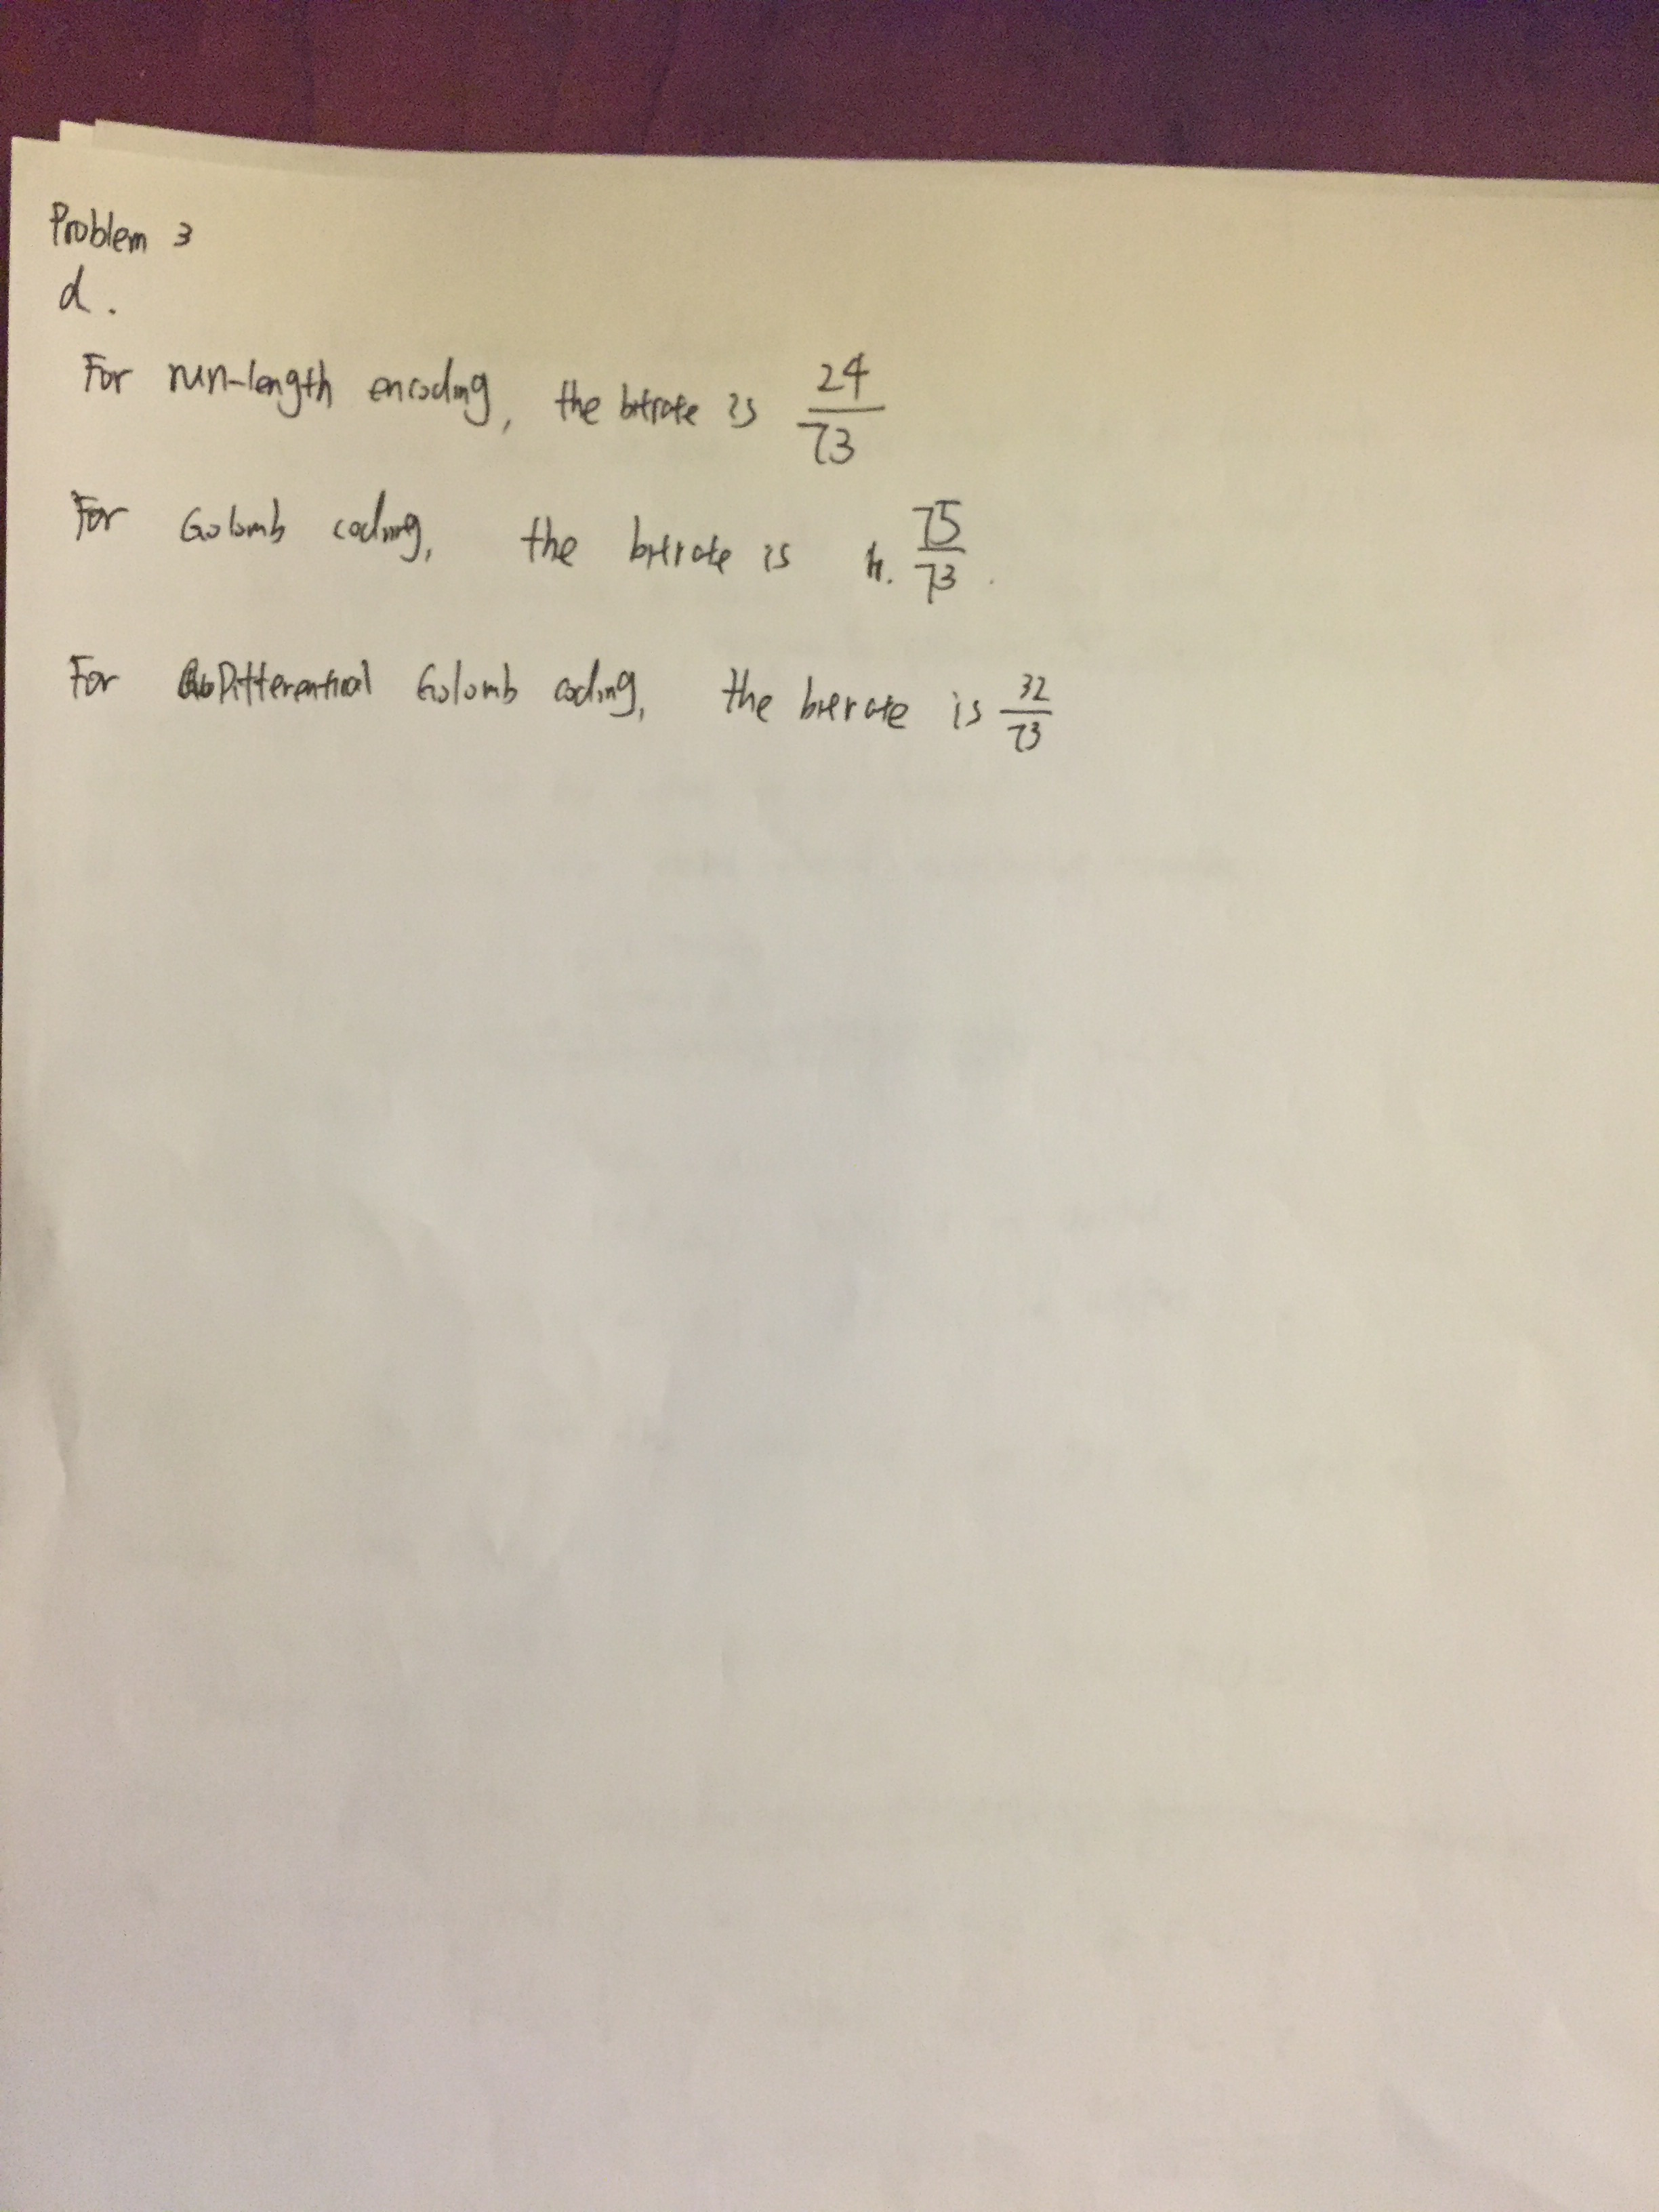 Problem 3
d.
For run-length encoding, the bitrate is 24/73
For Golomb coding, the bitrate is 75/73.
For Differential Golomb coding, the bitrate is 32/73